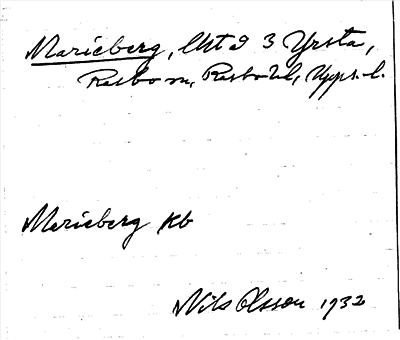 Marieberg, lht å 3 Yrsta,
Rasbo sn, Rasbo hd, Upps. l.
Marieberg Kb
Nils Olsson 1932